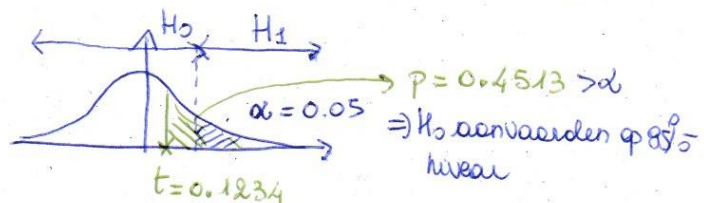 H₀ H₁
α = 0.05
p = 0.4513 > α
⇒ H₀ aanvaarden op 95%-
niveau
t = 0.1234